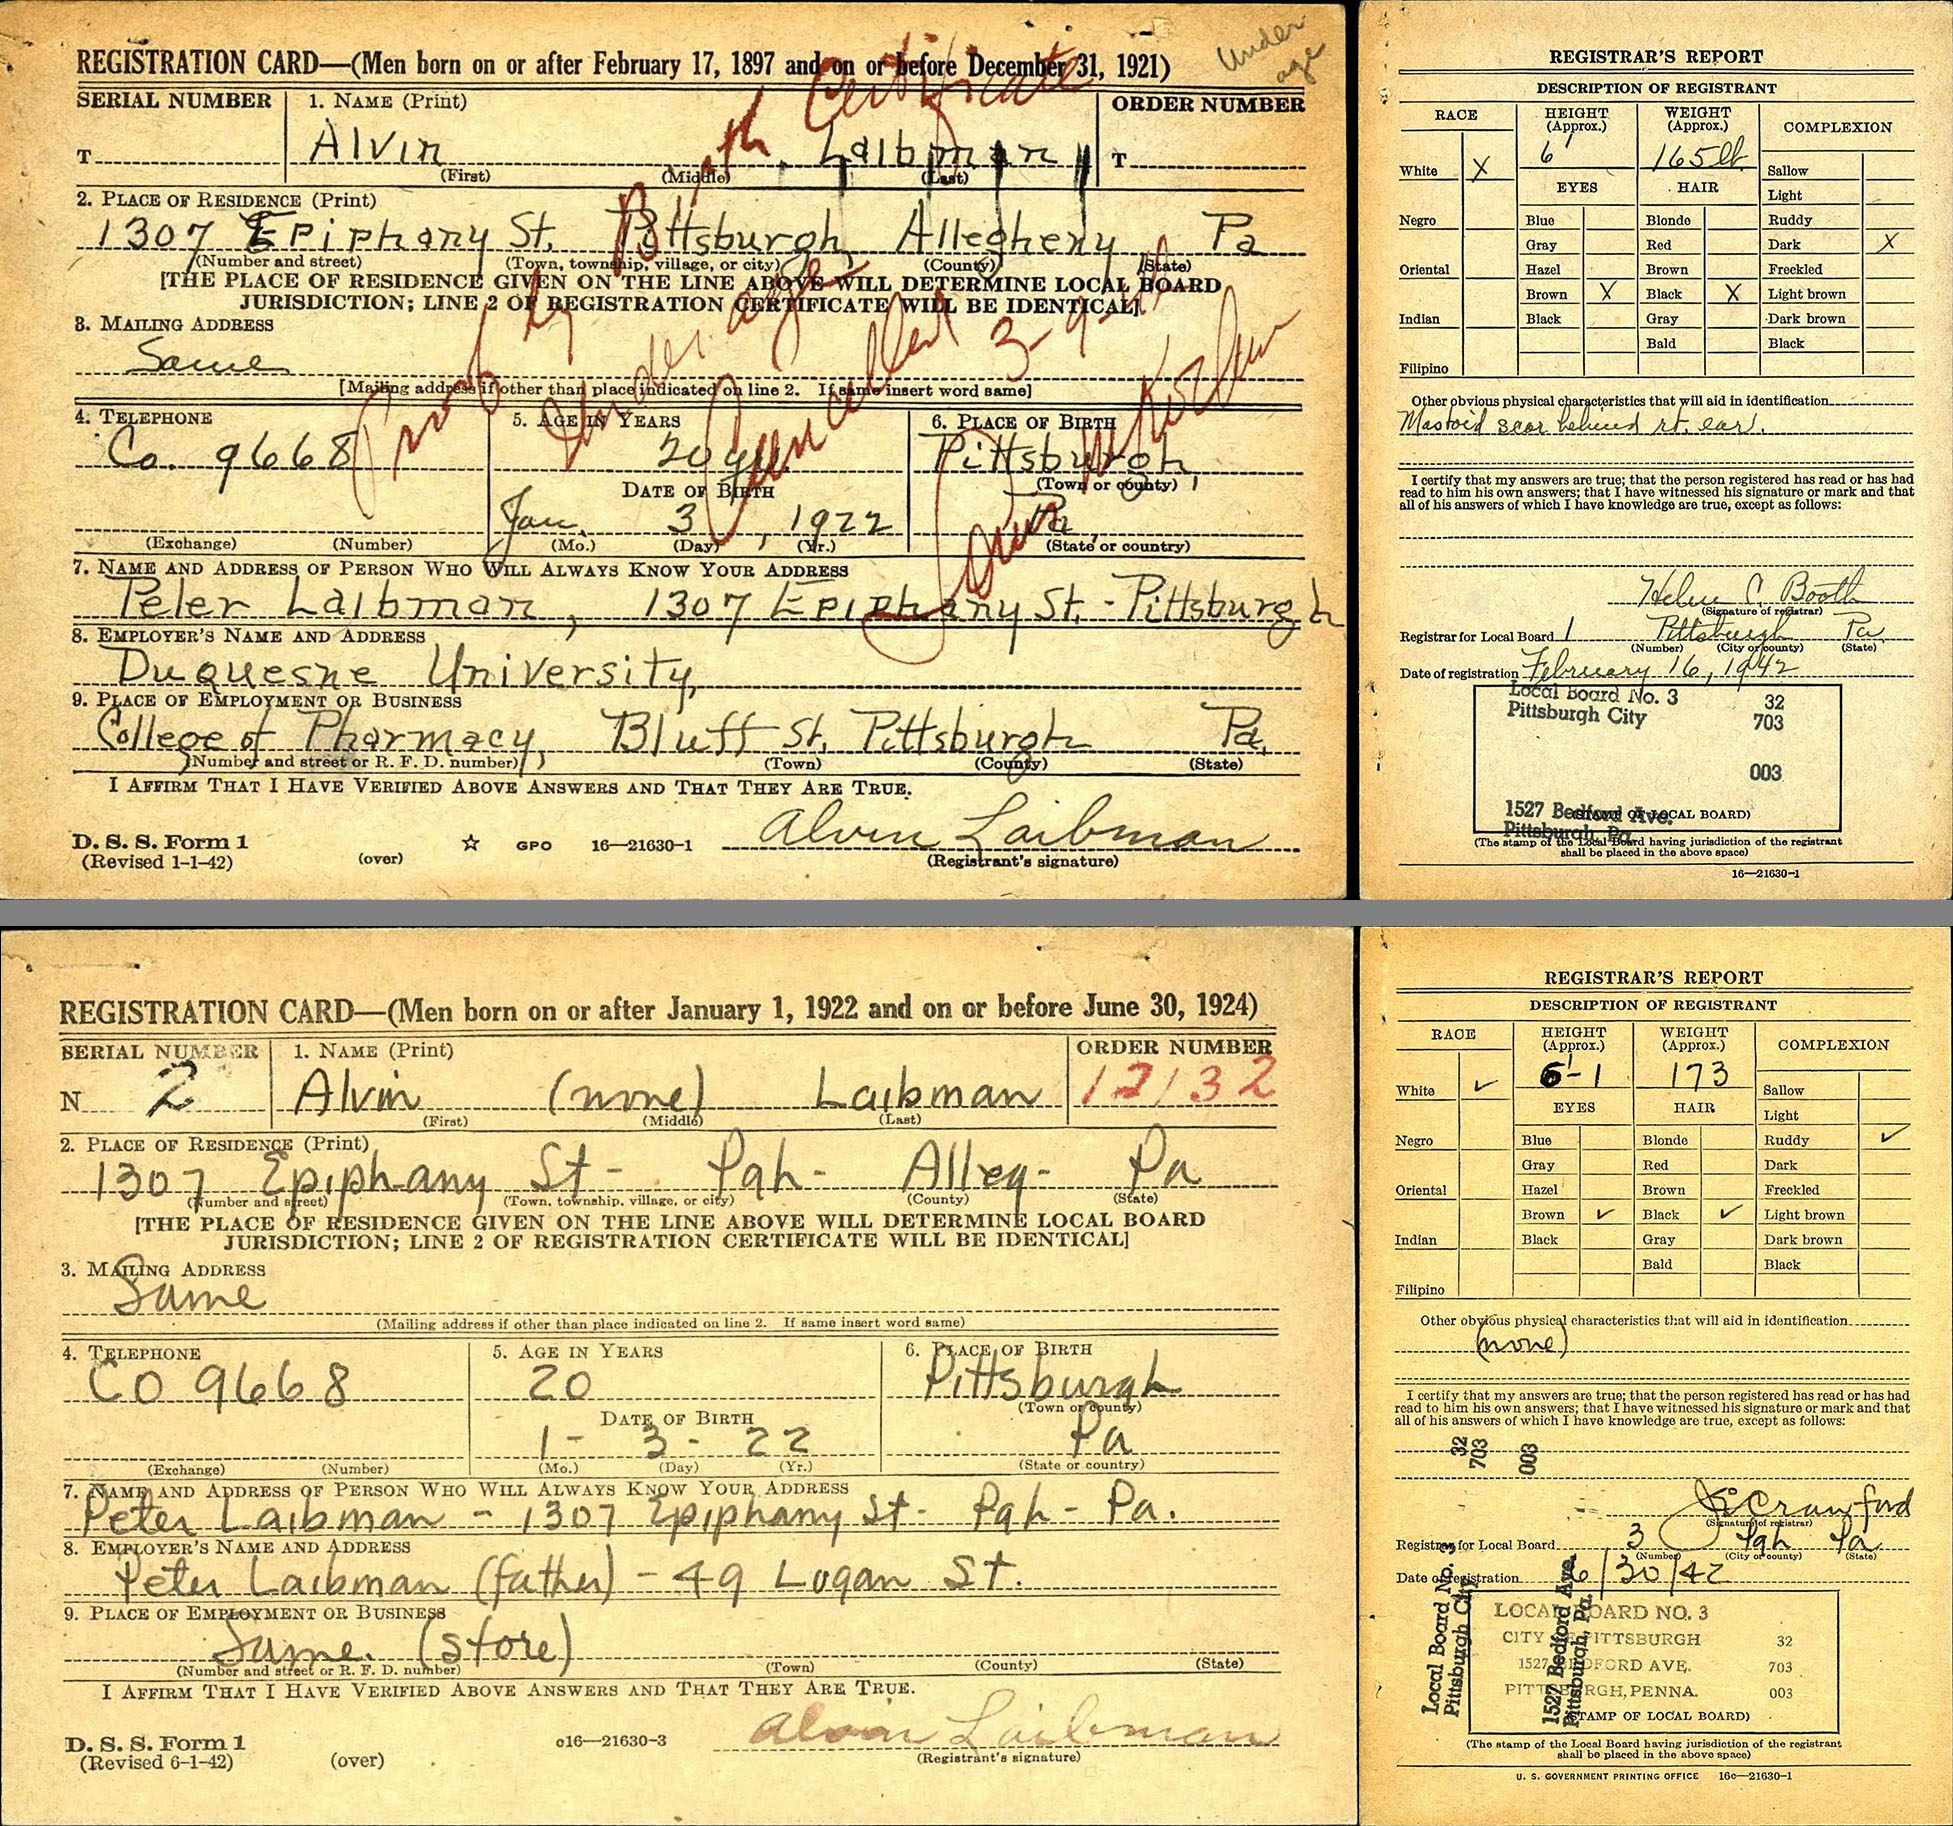 REGISTRATION CARD—(Men born on or after February 17, 1897 and on or before December 31, 1921)
Under age
SERIAL NUMBER
1. NAME (Print)
ORDER NUMBER
T
Alvin Laibman
T
(First) (Middle) (Last)
2. PLACE OF RESIDENCE (Print)
1307 Epiphany St. Pittsburgh, Allegheny Pa
(Number and street) (Town, township, village, or city) (County) (State)
[THE PLACE OF RESIDENCE GIVEN ON THE LINE ABOVE WILL DETERMINE LOCAL BOARD
JURISDICTION; LINE 2 OF REGISTRATION CERTIFICATE WILL BE IDENTICAL]
3. MAILING ADDRESS
Same
[Mailing address if other than place indicated on line 2. If same insert word same]
4. TELEPHONE
5. AGE IN YEARS
6. PLACE OF BIRTH
Co. 9668
20 yrs.
Pittsburgh,
(Town or county)
DATE OF BIRTH
Jan. 3, 1922
Pa
(Exchange) (Number)
(Mo.) (Day) (Yr.)
(State or country)
7. NAME AND ADDRESS OF PERSON WHO WILL ALWAYS KNOW YOUR ADDRESS
Peter Laibman, 1307 Epiphany St. - Pittsburgh
8. EMPLOYER'S NAME AND ADDRESS
Duquesne University,
9. PLACE OF EMPLOYMENT OR BUSINESS
College of Pharmacy, Bluff St. Pittsburgh Pa.
(Number and street or R. F. D. number) (Town) (County) (State)
I AFFIRM THAT I HAVE VERIFIED ABOVE ANSWERS AND THAT THEY ARE TRUE.
Alvin Laibman
D. S. S. Form 1
(Revised 1-1-42)
(over)
GPO 16—21630-1
(Registrant's signature)
Proof by Birth Certificate
Under age
Cancelled 3-9-42
REGISTRAR'S REPORT
DESCRIPTION OF REGISTRANT
RACE
HEIGHT (Approx.)
WEIGHT (Approx.)
COMPLEXION
6'
165 lb.
White X
Sallow
EYES
HAIR
Light
Negro
Blue
Blonde
Ruddy
Gray
Red
Dark X
Oriental
Hazel
Brown
Freckled
Brown X
Black X
Light brown
Indian
Black
Gray
Dark brown
Bald
Black
Filipino
Other obvious physical characteristics that will aid in identification
Mastoid scar behind rt. ear.
I certify that my answers are true; that the person registered has read or has had
read to him his own answers; that I have witnessed his signature or mark and that
all of his answers of which I have knowledge are true, except as follows:
Helen C. Booth
(Signature of registrar)
Registrar for Local Board 1 Pittsburgh Pa.
(Number) (City or county) (State)
Date of registration February 16, 1942
Local Board No. 3 32
Pittsburgh City 703
003
1527 Bedford Ave.
Pittsburgh, Pa.
(STAMP OF LOCAL BOARD)
(The stamp of the Local Board having jurisdiction of the registrant
shall be placed in the above space)
16—21630-1
REGISTRATION CARD—(Men born on or after January 1, 1922 and on or before June 30, 1924)
SERIAL NUMBER
1. NAME (Print)
ORDER NUMBER
N 2
Alvin (none) Laibman
12132
(First) (Middle) (Last)
2. PLACE OF RESIDENCE (Print)
1307 Epiphany St - Pgh - Alleg - Pa
(Number and street) (Town, township, village, or city) (County) (State)
[THE PLACE OF RESIDENCE GIVEN ON THE LINE ABOVE WILL DETERMINE LOCAL BOARD
JURISDICTION; LINE 2 OF REGISTRATION CERTIFICATE WILL BE IDENTICAL]
3. MAILING ADDRESS
Same
(Mailing address if other than place indicated on line 2. If same insert word same)
4. TELEPHONE
5. AGE IN YEARS
6. PLACE OF BIRTH
CO 9668
20
Pittsburgh
(Town or county)
DATE OF BIRTH
1 - 3 - 22
Pa
(Exchange) (Number)
(Mo.) (Day) (Yr.)
(State or country)
7. NAME AND ADDRESS OF PERSON WHO WILL ALWAYS KNOW YOUR ADDRESS
Peter Laibman - 1307 Epiphany St - Pgh - Pa.
8. EMPLOYER'S NAME AND ADDRESS
Peter Laibman (father) - 49 Logan St.
9. PLACE OF EMPLOYMENT OR BUSINESS
Same. (store)
(Number and street or R. F. D. number) (Town) (County) (State)
I AFFIRM THAT I HAVE VERIFIED ABOVE ANSWERS AND THAT THEY ARE TRUE.
Alvin Laibman
D. S. S. Form 1
(Revised 6-1-42)
(over)
o16—21630-3
(Registrant's signature)
REGISTRAR'S REPORT
DESCRIPTION OF REGISTRANT
RACE
HEIGHT (Approx.)
WEIGHT (Approx.)
COMPLEXION
6-1
173
White ✓
Sallow
EYES
HAIR
Light
Negro
Blue
Blonde
Ruddy ✓
Gray
Red
Dark
Oriental
Hazel
Brown
Freckled
Brown ✓
Black ✓
Light brown
Indian
Black
Gray
Dark brown
Bald
Black
Filipino
Other obvious physical characteristics that will aid in identification
(none)
I certify that my answers are true; that the person registered has read or has had
read to him his own answers; that I have witnessed his signature or mark and that
all of his answers of which I have knowledge are true, except as follows:
32
703
003
Crawford
(Signature of registrar)
Registrar for Local Board 3 Pgh Pa
(Number) (City or county) (State)
Date of registration 6/30/42
Local Board No. 3
Pittsburgh City
1527 Bedford Ave.
Pittsburgh, Pa.
LOCAL BOARD NO. 3
CITY OF PITTSBURGH 32
1527 BEDFORD AVE. 703
PITTSBURGH, PENNA. 003
(STAMP OF LOCAL BOARD)
(The stamp of the Local Board having jurisdiction of the registrant
shall be placed in the above space)
U. S. GOVERNMENT PRINTING OFFICE 16c—21630-1